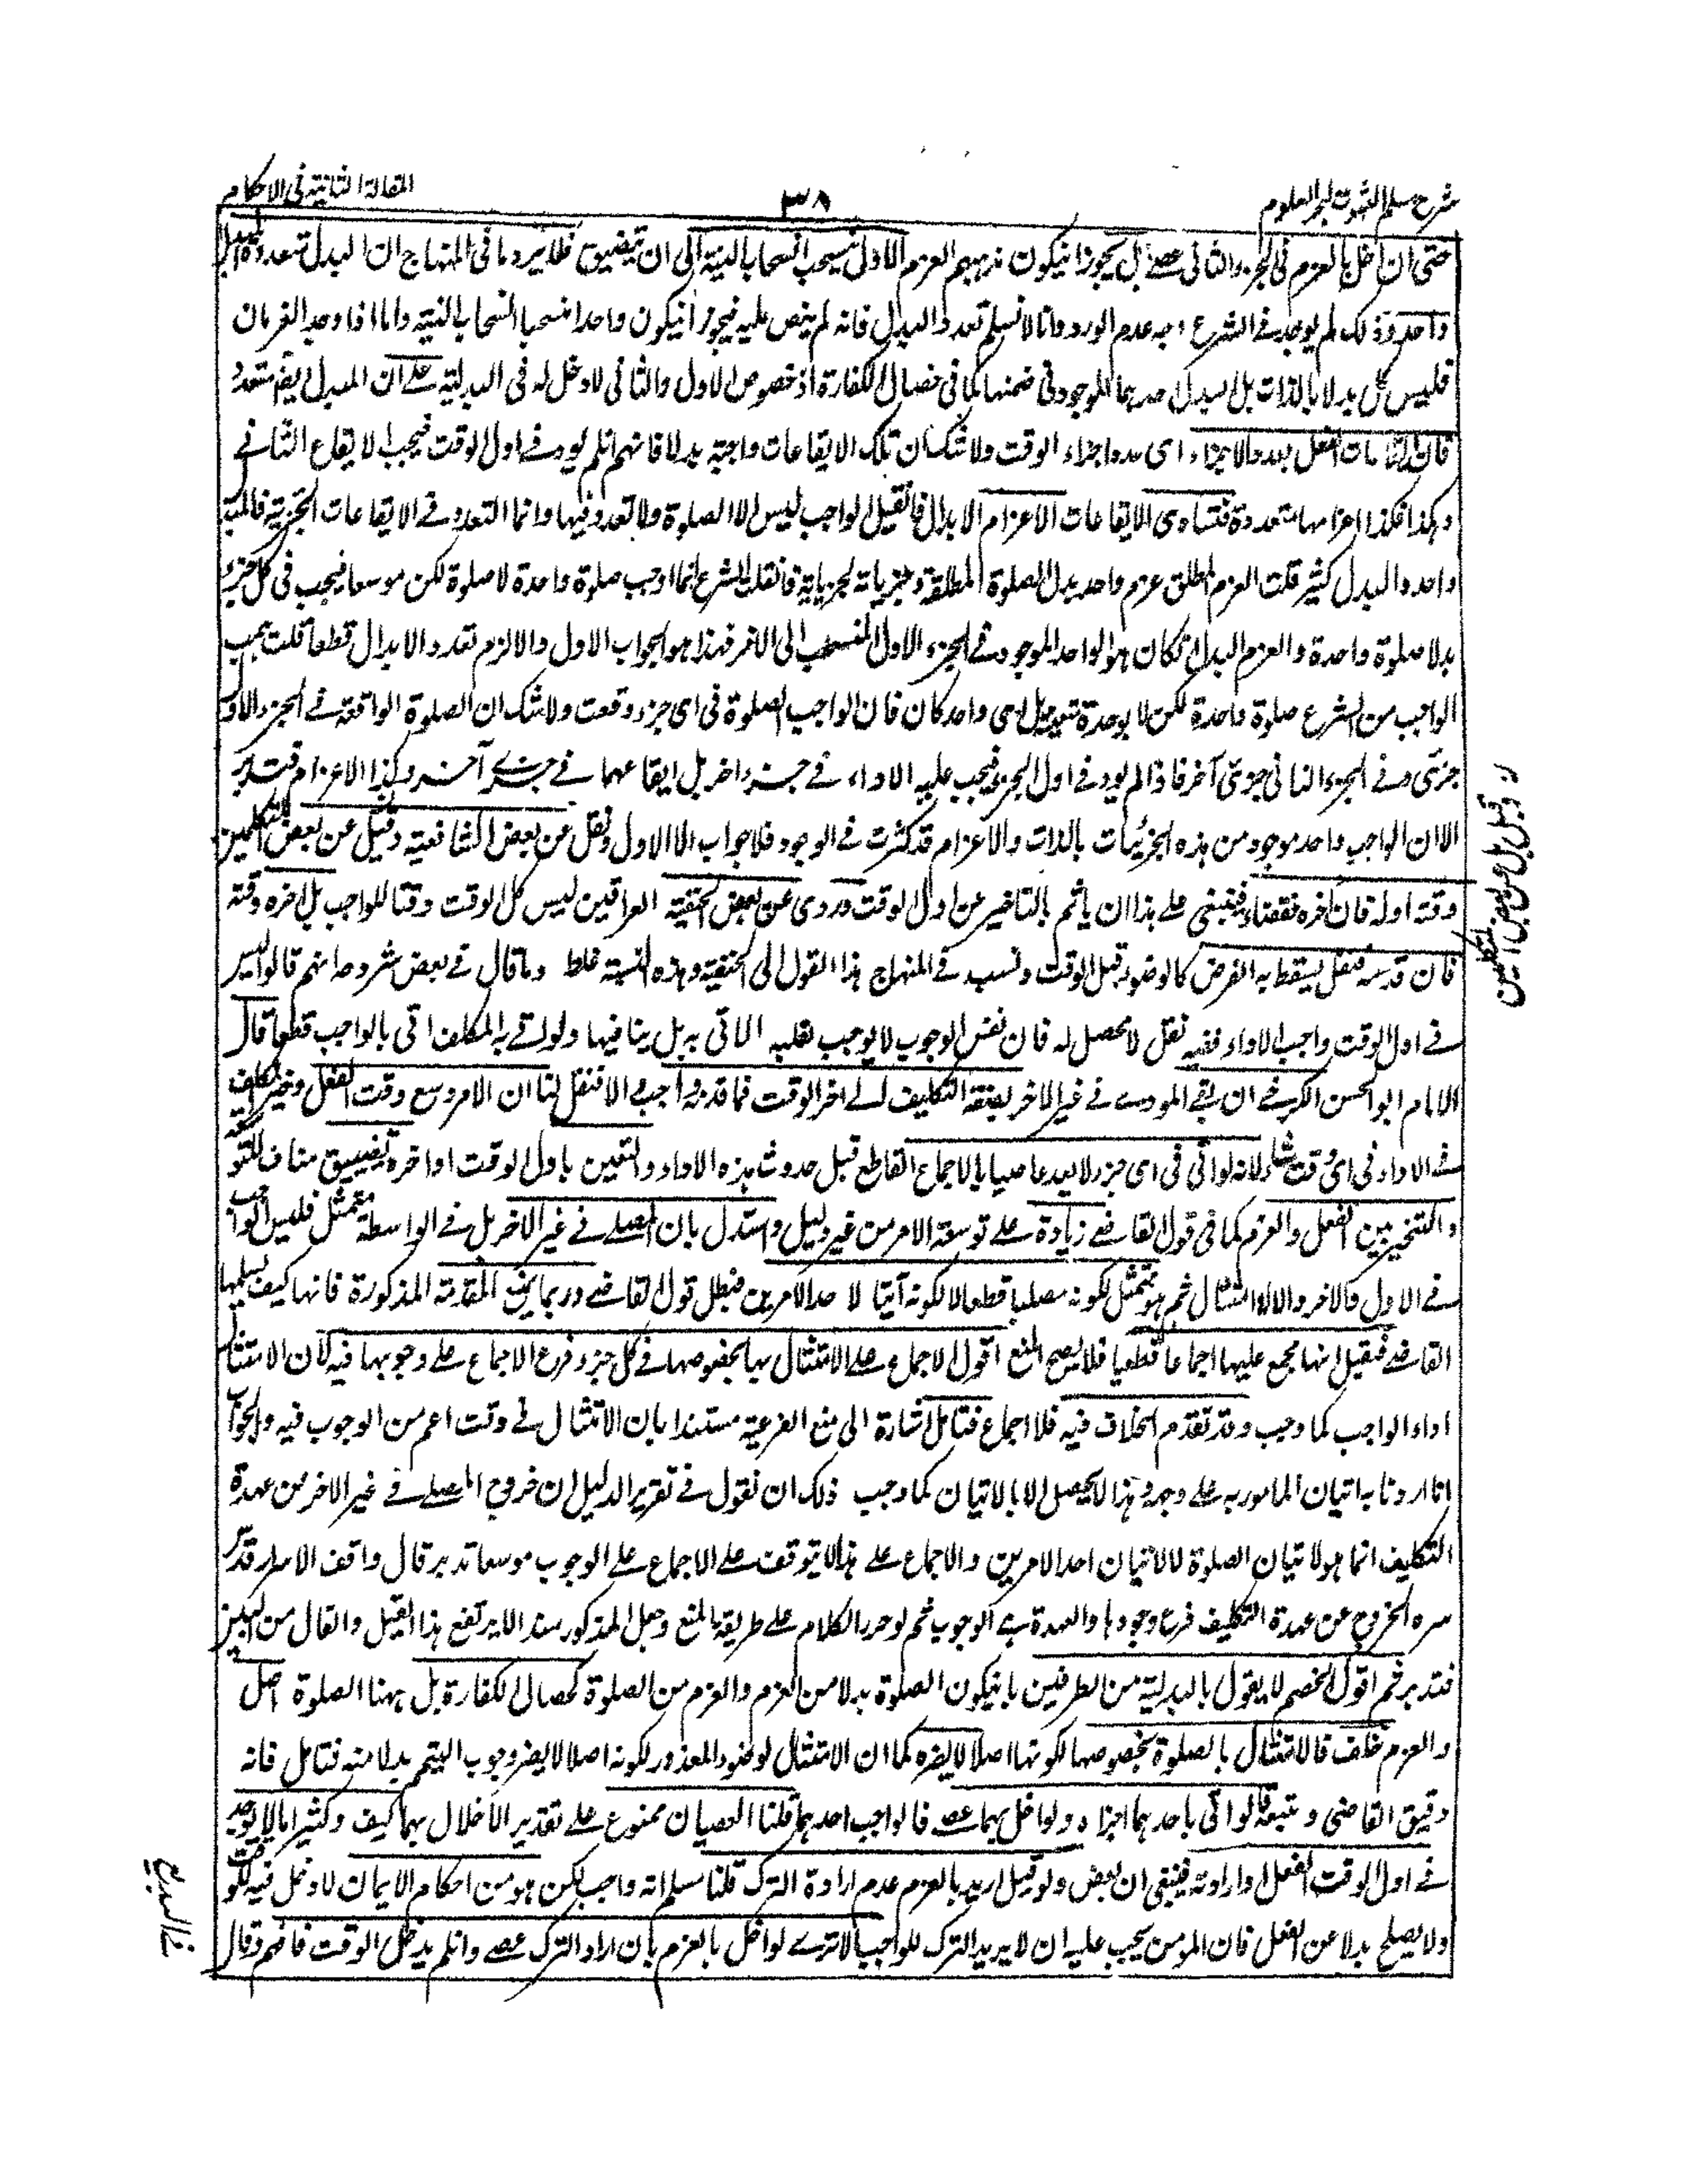 شرح مسلم الثبوت لبحر العلوم
٣٨
المقالة الثانية فى الاحكام
حتى ان اخل بالعزم فى الجزء الثانى عصى بل يجوز انيكون مذهبهم العزم الاول ينسحب انسحاب النية الى ان يتضيق فلا يرد ما فى المنهاج ان البدل تعدد والمبدل
واحد وذلك لم يوجد فى الشرع وجه عدم الورود انا لا نسلم تعدد البدل فانه لم ينص عليه فيجوز انيكون واحدا منسحبا انسحاب النية واما اذا وجد العزمان
فليس كل بدلا بالذات بل البدل احدهما الموجود فى ضمنها كما فى خصال الكفارة اذ خصوص الاول والثانى لا دخل له فى البدلية على ان المبدل ايضا متعدد
فان ايقاعات الفعل بعدد الاجزاء اى عدد اجزاء الوقت ولا شك ان تلك الايقاعات واجبة بدلا فانهم ان لم يود فى اول الوقت فيجب الايقاع الثانى
وهكذا فكذا اعزامها متعددة فتساوى الايقاعات الاعزام الابدال فان قيل الواجب ليس الا الصلوة ولا تعدد فيها وانما التعدد فى الايقاعات الجزئية فالمبدل
واحد والبدل كثير قلت العزم المطلق عزم واحد بدل الصلوة المطلقة وجزئياته لجزئياته فان قلت الشرع انما اوجب صلوة واحدة لا صلوة لكن موسعا فيجب فى كل جزء
بدلا صلوة واحدة والعزم البدل ان كان هو الواحد الموجود فى الجزء الاول المنسحب الى الاخر فهذا هو الجواب الاول والا لزم تعدد الابدال قطعا قلت هب
الواجب من الشرع صلوة واحدة لكن لا بوحدة شخصية بل اى واحد كان فان الواجب الصلوة فى اى جزء وقعت ولا شك ان الصلوة الواقعة فى الجزء الاول
جزئى وفى الجزء الثانى جزئى آخر فاذا لم يود فى اول الجزء فيجب عليه الاداء فى جزء اخر بل ايقاعهما فى جزء آخر وكذا الاعزام فتدبر
الا ان الواجب واحد موجود من هذه الجزئيات بالذات والاعزام قد كثرت فى الوجود فلا جواب الا الاول ونقل عن بعض الشافعية وقيل عن بعض المتكلمين
وقته اوله فان اخره فقضاء فينبغى على هذا ان ياثم بالتاخير عن اول الوقت وروى عن بعض الحنفية العراقين ليس كل الوقت وقتا للواجب بل اخره وقته
فان قدمه فنفل يسقط به الفرض كالوضوء قبل الوقت ونسب فى المنهاج هذا القول الى الحنفية وهذه النسبة غلط وما قال فى بعض شروحه انهم قالوا ليس
فى اول الوقت واجب الاداء ففيه نقل لا محصل له فان نفس الوجوب لا يوجب نفلية الاتى به بل ينافيها ولو اتى به المكلف اتى بالواجب قطعا قال
الامام ابو الحسن الكرخى ان بقى المودى فى غير الاخر بصفة التكليف الى اخر الوقت فما قدمه واجب والا فنفل لنا ان الامر وسع وقت الفعل وخير المكلف
فى الاداء فى اى وقت شاء لانه لو اتى فى اى جزء لا يعد عاصيا بالاجماع القاطع قبل حدوث هذه الاراء والتعين باول الوقت او اخره تضييق مناف للتوسعة
والتخيير بين الفعل والعزم كما فى قول القاضى زيادة على توسعة الامر من غير دليل واستدل بان المصلى فى غير الاخر بل فى الواسطة ممتثل فليس الواجب
فى الاول والاخر والا لما امتثل ثم هو ممتثل لكونه مصليا قطعا لا لكونه آتيا لا حد الامرين فبطل قول القاضى وربما يمنع المقدمة المذكورة فانها كيف يسلمها
القاضى فيقيل انها مجمع عليها اجماعا قطعيا فلا يصح المنع اقول الاجماع على الامتثال بها بخصوصها فى كل جزء فرع الاجماع على وجوبها فيه لان الامتثال
اداء الواجب كما وجب وقد تقدم الخلاف فيه فلا اجماع فتامل اشارة الى منع الفرعية مستندا بان الامتثال فى وقت اعم من الوجوب فيه والجواب
انا اردنا به اتيان المامور به على وجهه وهذا لا يحصل الا بالاتيان كما وجب ذلك ان نقول فى تقرير الدليل ان خروج المصلى فى غير الاخر من عهدة
التكليف انما هو لاتيان الصلوة لا لاتيان احد الامرين والاجماع على هذا لا يتوقف على الاجماع على الوجوب موسعا تدبر قال واقف الاسرار قدس
سره الخروج عن عهدة التكليف فرع وجودها والعهدة هى الوجوب ثم لو حرر الكلام على طريقة المنع وجعل المذكور سندا لا يرتفع هذا القيل والقال من البين
فتدبر ثم اقول الخصم لا يقول بالبدلية من الطرفين بانيكون الصلوة بدلا من العزم والعزم من الصلوة كخصال الكفارة بل ههنا الصلوة اصل
والعزم خلف فالامتثال بالصلوة بخصوصها لكونها اصلا لا يضره كما ان الامتثال لوضوء المعذور لكونه اصلا لا يضر وجوب التيمم بدلا منه فتامل فانه
دقيق القاضى ومتبعوه قالوا لو اتى باحدهما اجزاه ولو اخل بهما عصى فالواجب احدهما قلنا العصيان ممنوع على تقدير الاخلال بهما كيف وكثيرا ما لا يوجد
فى اول الوقت الفعل وارادته فينبغى ان بعض ولو قيل اريد بالعزم عدم ارادة الترك قلنا مسلم انه واجب لكن هو من احكام الايمان لا دخل فيه للوقت
ولا يصلح بدلا عن الفعل فان المومن يجب عليه ان لا يريد الترك للواجب الا ترى لو اخل بالعزم بان اراد الترك عصى وان لم يدخل الوقت فافهم وقال
له وقيل بل عن بعض المتكلمين
فى البديع